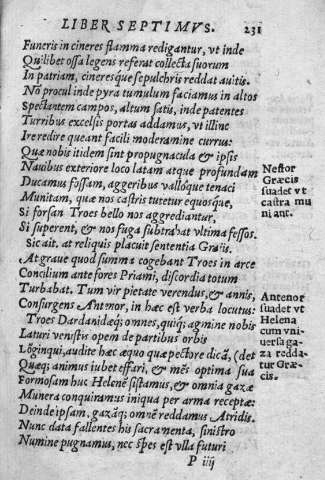 LIBER SEPTIMVS. 231
Funeris in cineres flamma redigantur, vt inde
Quilibet ossa legens referat collecta suorum
In patriam, cineresque sepulchris reddat auitis.
Nō procul inde pyra tumulum faciamus in altos
Spectantem campos, altum satis, inde patentes
Turribus excelsis portas addamus, vt illinc
Ire redire queant facili moderamine currus:
Quæ nobis itidem sint propugnacula & ipsis
Nauibus exteriore loco latam atque profundam
Ducamus fossam, aggeribus valloque tenaci
Munitam, quæ nos castris tutetur equosque,
Si forsan Troes bello nos aggrediantur,
Si superent, & nos fuga subtrahat vltima fessos.
Sic ait. at reliquis placuit sententia Graiis.
At graue quod summa cogebant Troes in arce
Concilium ante fores Priami, discordia totum
Turbabat. Tum vir pietate verendus, & annis,
Consurgens Antenor, in hæc est verba locutus:
Troes Dardanidæq; omnes, quiq; agmine nobis
Laturi venistis opem de partibus orbis
Lōginqui, audite hæc æquo quæ pectore dicā, (det
Quæq; animus iubet effari, & mēs optima sua
Formosam huc Helenē sistamus, & omnia gazæ
Munera conquiramus iniqua per arma receptæ:
Deinde ipsam, gazāq; omnē reddamus Atridis.
Nunc data fallentes his sacramenta, sinistro
Numine pugnamus, nec spes est vlla futuri
P iiij
Nestor
Græcis
suadet vt
castra mu
niant.
Antenor
suadet vt
Helena
cum vni-
uersa ga-
za redda-
tur Græ-
cis.